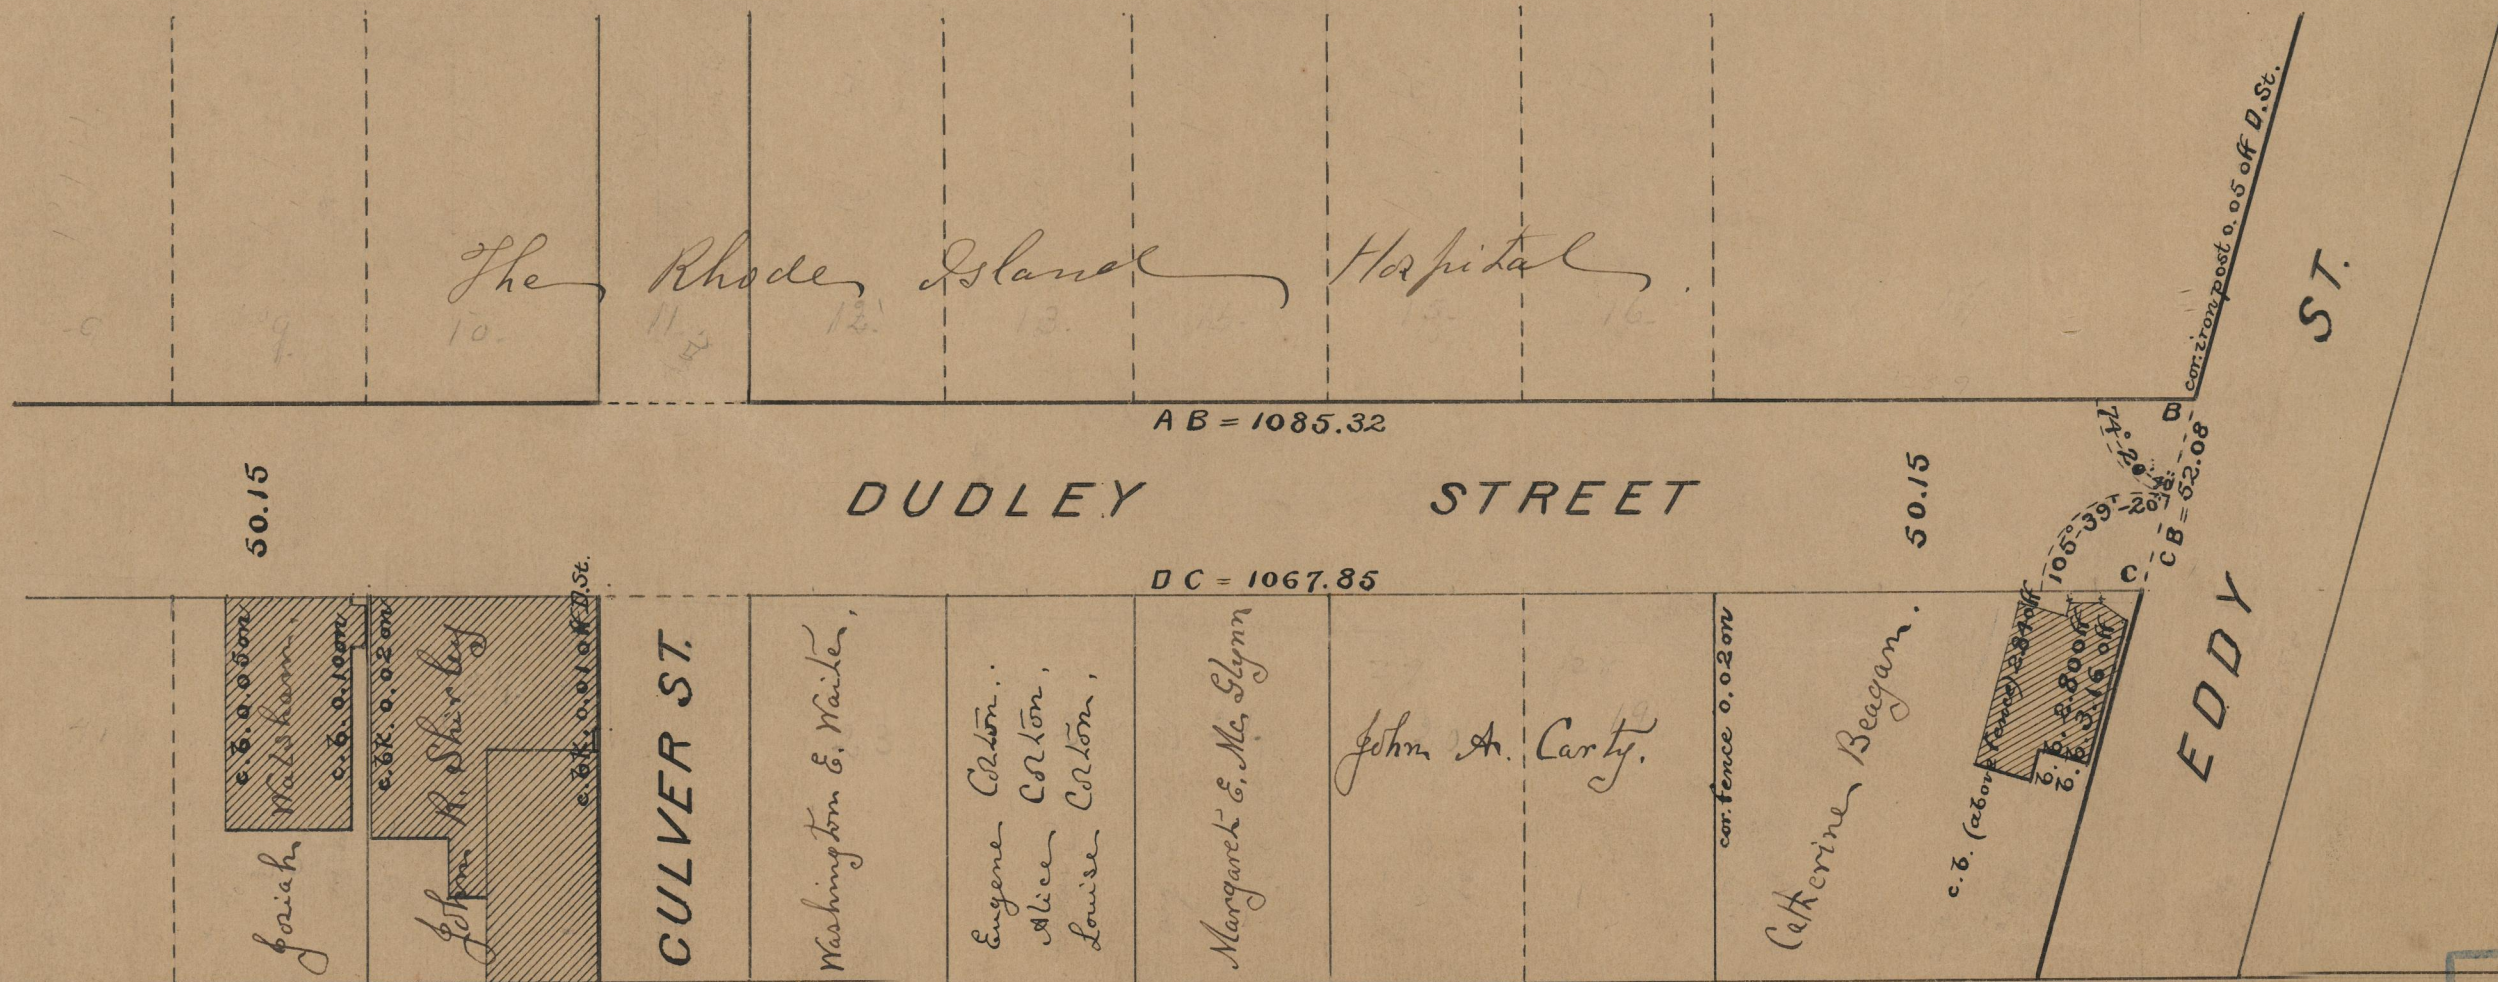 The Rhode Island Hospital.
9.
10.
11
12.
13.
15.
16.
cor. iron post 0.05 off D. St.
AB = 1085.32
B
CB = 52.08
50.15
DUDLEY STREET
50.15
105°-39'-20"
C
DC = 1067.85
EDDY ST.
c.b. 0.05 on
c.b. 0.10 on
Josiah Watsham,
c.bk. 0.02 on
John R. Shirley
c.bk. 0.01 off D. St.
CULVER ST.
Washington E. Waite,
Eugene Cotton.
Alice Cotton,
Louise Cotton,
Margaret E. McGlynn
John A. Carty.
cor. fence 0.02 on
Catherine Beagan.
c.b. (above fence) 2.84 off
b.b. 2.80 off
b.b. 3.16 off